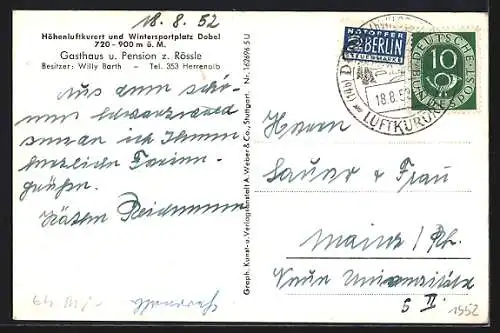 18. 8. 52
Höhenluftkurort und Wintersportplatz Dobel
720 - 900 m ü. M.
Gasthaus u. Pension z. Rössle
Besitzer: Willy Barth - Tel. 353 Herrenalb
Aus dem schö-
nen Schwarzwald
senden ich Ihnen
herzliche Ferien-
grüße.
Käthe
Graph. Kunst- u. Verlagsanstalt A. Weber & Co., Stuttgart. Nr. 162696 SU
NOTOPFER
2 BERLIN
STEUERMARKE
DEUTSCHE
BUNDESPOST
10
18.8.52
LUFTKURORT
Herrn
Sauer u Frau
Mainz / Rh.
Neue Universität
S II.
1952